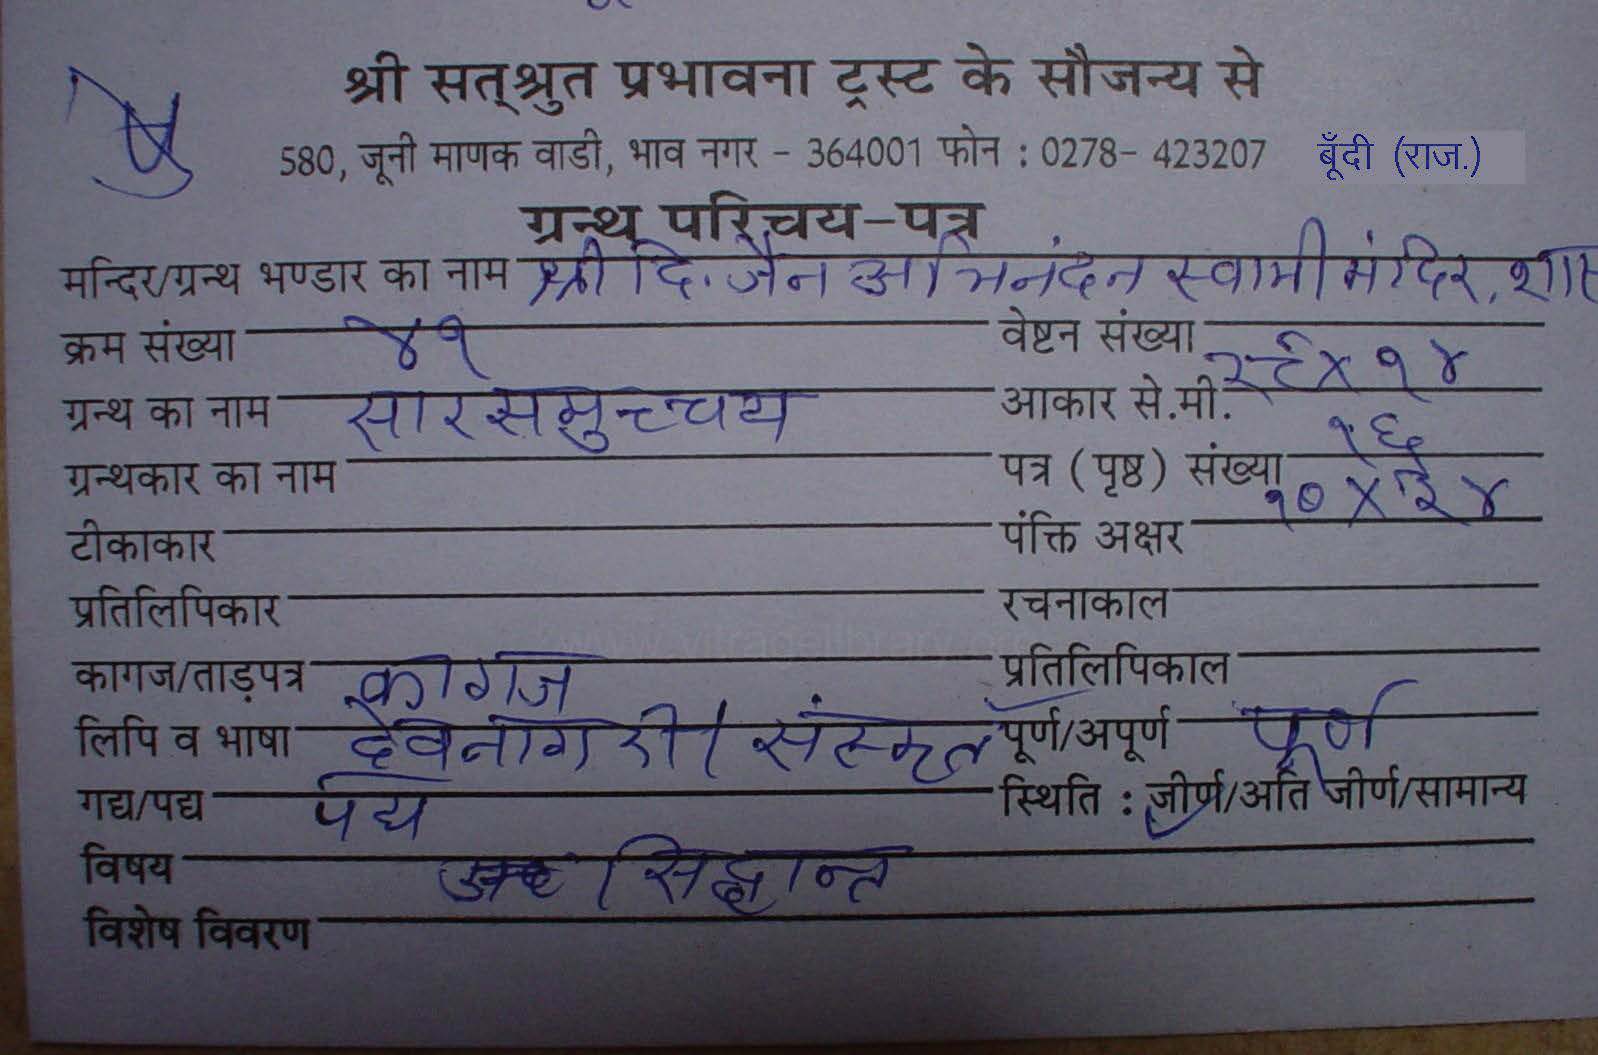 श्री सत्श्रुत प्रभावना ट्रस्ट के सौजन्य से
580, जूनी माणक वाडी, भाव नगर - 364001 फोन : 0278- 423207 बूँदी (राज.)
ग्रन्थ परिचय-पत्र
मन्दिर/ग्रन्थ भण्डार का नाम श्री दि. जैन अभिनंदन स्वामी मंदिर,
क्रम संख्या ४१ वेष्टन संख्या
ग्रन्थ का नाम सारसमुच्चय आकार से.मी. २८ x १४
ग्रन्थकार का नाम पत्र (पृष्ठ) संख्या १६
टीकाकार पंक्ति अक्षर १० x ३४
प्रतिलिपिकार रचनाकाल
www.vitragelibrary.org
कागज/ताड़पत्र कागज प्रतिलिपिकाल
लिपि व भाषा देवनागरी / संस्कृत पूर्ण/अपूर्ण पूर्ण
गद्य/पद्य पद्य स्थिति : जीर्ण/अति जीर्ण/सामान्य
विषय सिद्धान्त
विशेष विवरण